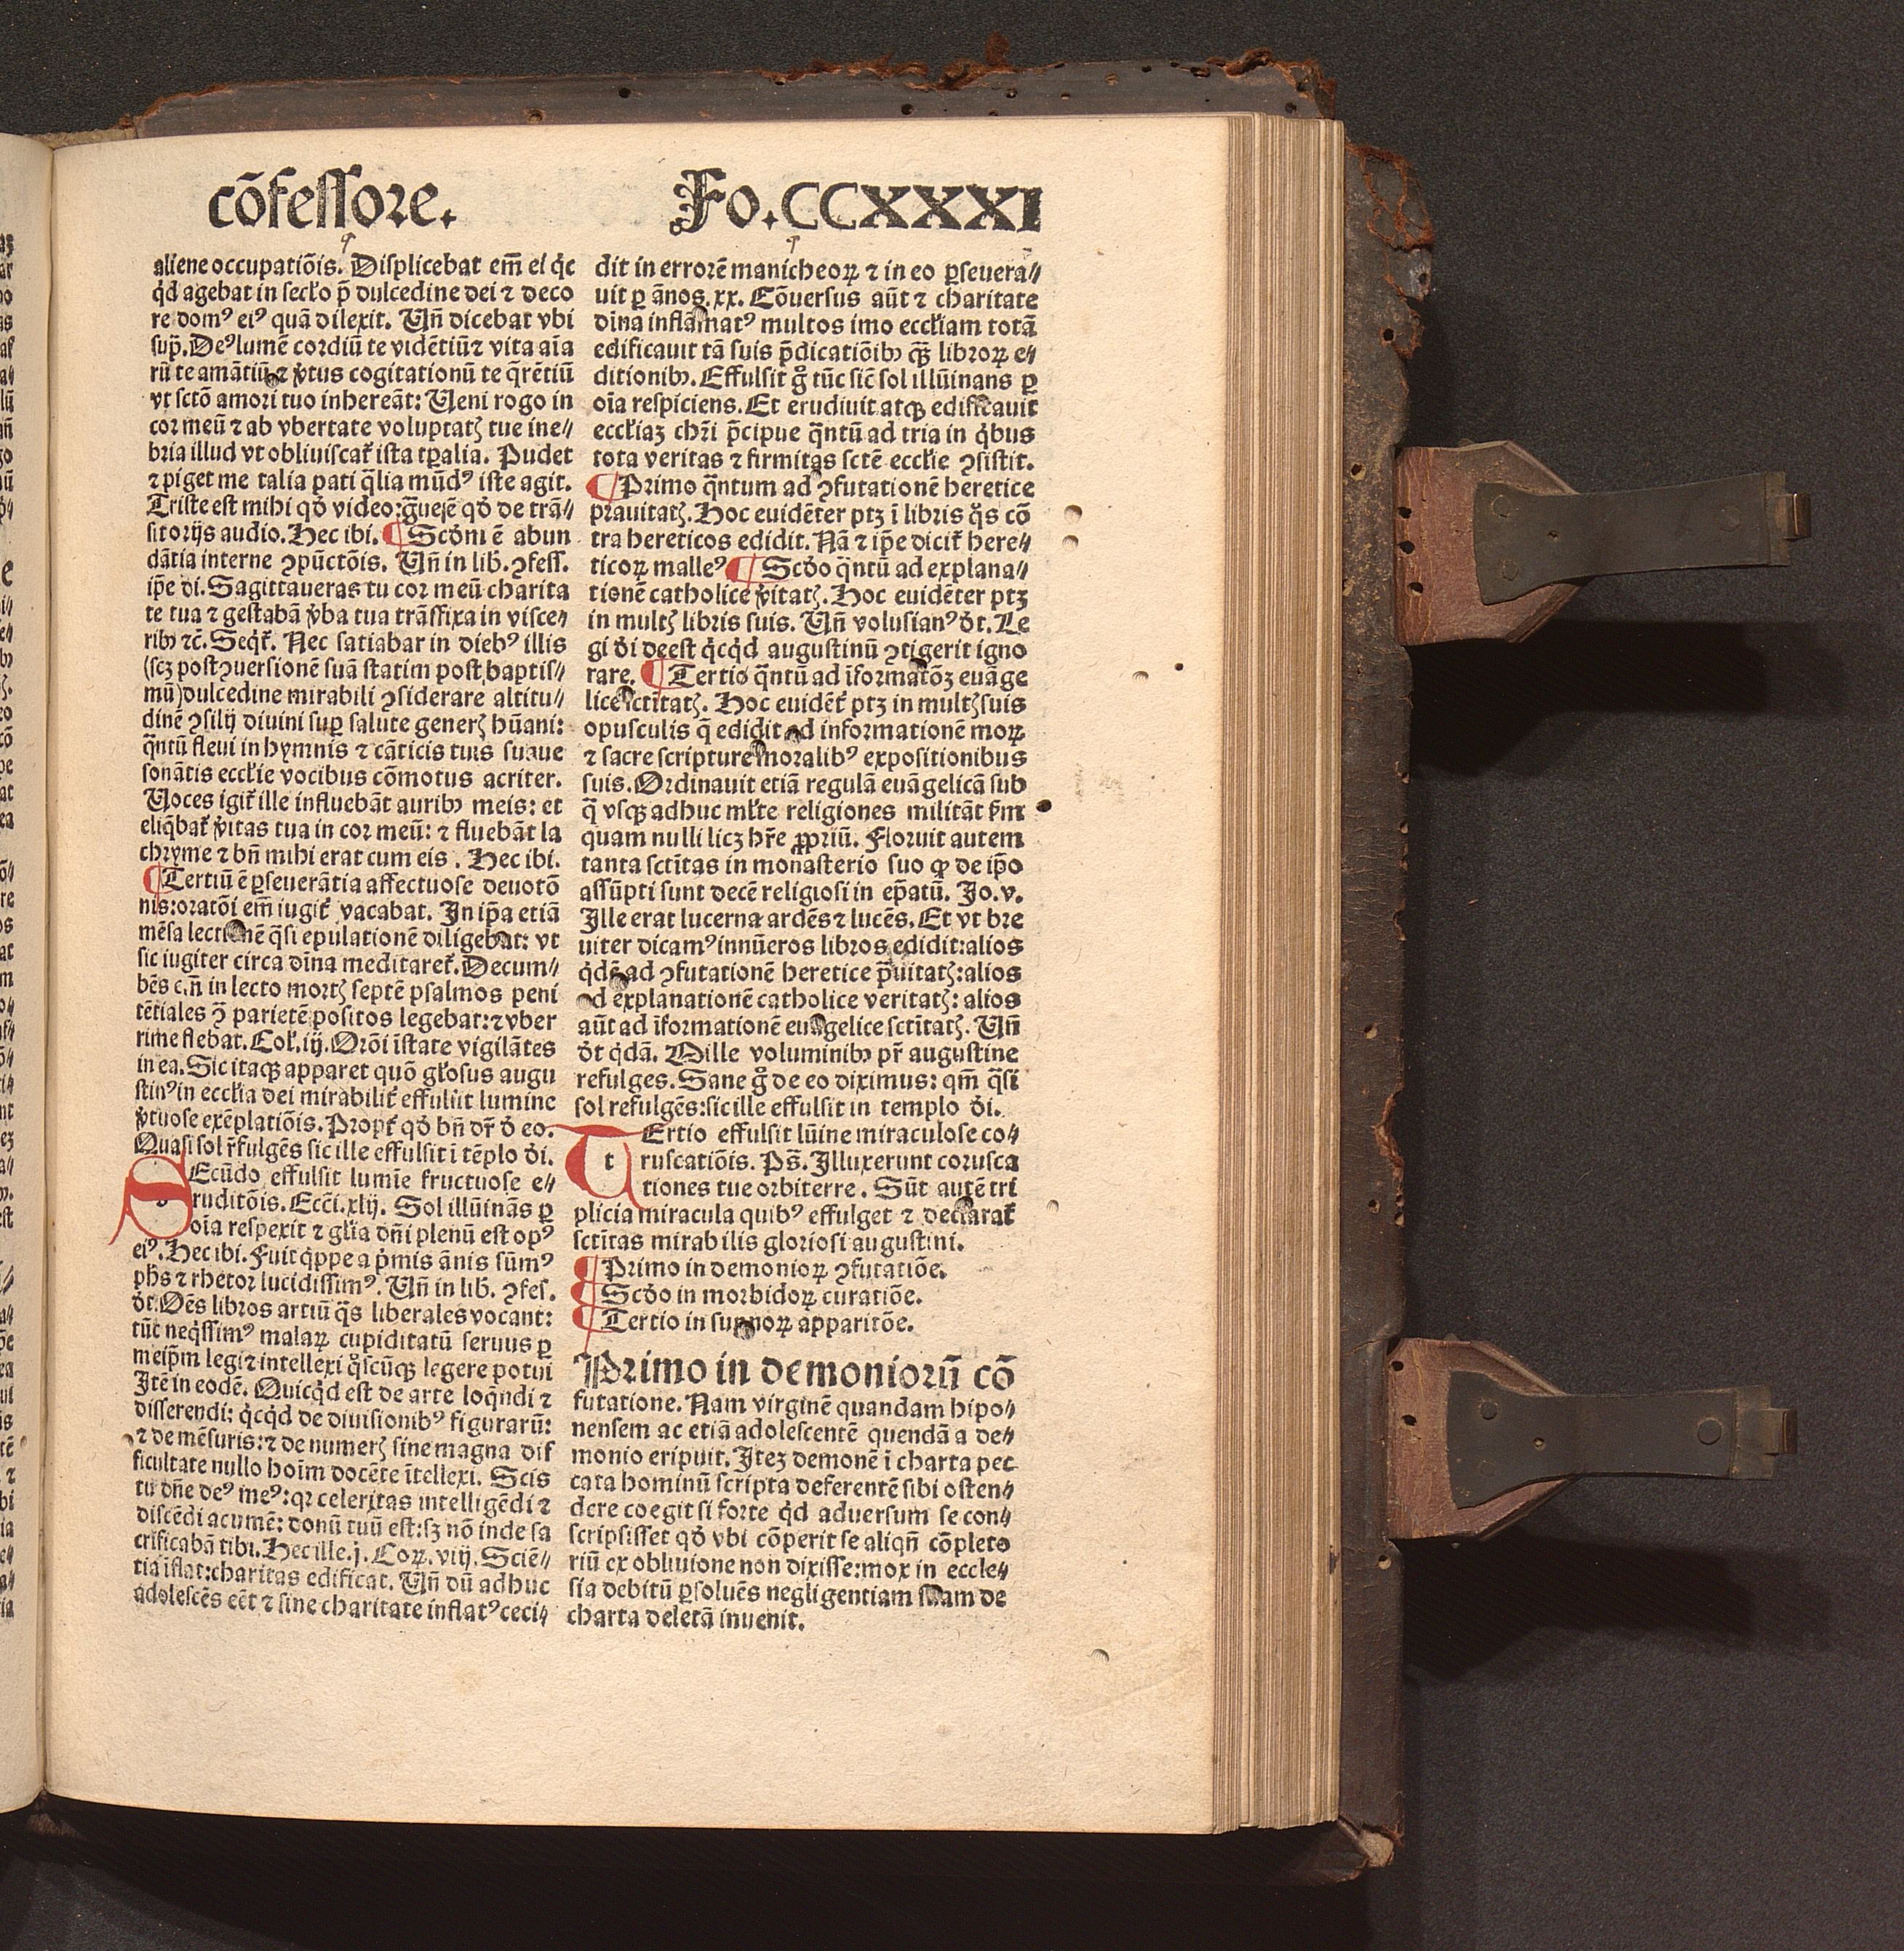 cõfessore. Fo.CCXXXI
aliene occupatiõis. Displicebat em̃ ei q̇c
q̇d agebat in secl'o p̄ dulcedine dei ⁊ deco
re domꝰ eiꝰ quã dilexit. Vñ dicebat vbi
sup̄. Deꝰ lumē cordiũ te vidētiũ ⁊ vita aĩa
rũ te amãtiũ ⁊ v̇tus cogitationũ te q̄rētiũ
vt sctõ amori tuo inhereãt: Veni rogo in
cor meũ ⁊ ab vbertate voluptatꝭ tue ine⸗
bria illud vt obliuiscat̃ ista tꝑalia. Pudet
⁊ piget me talia pati q̄lia mũdꝰ iste agit.
Triste est mihi qḋ video: g̃ue sē qḋ de trã⸗
sitorijs audio. Hec ibi. ¶ Scḋm ē abun
dãtia interne ↄpũctõis. Vñ in lib. ↄfess.
ip̃e di. Sagittaueras tu cor meũ charita
te tua ⁊ gestabã v̇ba tua trãsfixa in visce⸗
ribꝫ ⁊c̃. Seqt̃. Nec satiabar in diebꝰ illis
(scꝫ post ↄuersionē suã statim post baptis⸗
mũ) dulcedine mirabili ↄsiderare altitu⸗
dinē ↄsilij diuini suꝑ salute generꝭ hũani:
q̃ntũ fleui in hymnis ⁊ cãticis tuis suaue
sonãtis eccl'ie vocibus cõmotus acriter.
Voces igit̃ ille influebãt auribꝫ meis: et
eliq̃bat̃ v̇itas tua in cor meũ: ⁊ fluebãt la
chryme ⁊ bñ mihi erat cum eis. Hec ibi.
¶ Tertiũ ē ꝑseuerãtia affectuose deuotõ
nis: oratõi em̃ iugit̃ vacabat. In ip̃a etiã
mēsa lectionē q̃si epulationē diligebat: vt
sic iugiter circa diña meditaret̃. Decum⸗
bēs e.ñ in lecto mortꝭ septē psalmos peni
tētiales ꝯ̃ parietē positos legebat: ⁊ vber
rime flebat. Col'. iij. Orõi ĩstate vigilãtes
in ea. Sic itaqꝫ apparet quõ gl'osus augu
stinꝰ in eccl'ia dei mirabilit̃ effulsit lumine
v̇tuose exēplatiõis. Propt̃ qḋ bñ dr̃ ḋ eo.
Quasi sol r̃fulgēs sic ille effulsit ĩ tēplo ḋi.
SEcũdo effulsit lumĩe fructuose e⸗
ruditõis. Ecci̇. xlij. Sol illũinãs ꝑ
oĩa respexit ⁊ gl'ia dñi plenũ est opꝰ
eiꝰ. Hec ibi. Fuit q̇ppe a p̄mis ãnis sũmꝰ
ph̃s ⁊ rhetor lucidissimꝰ. Vñ in lib. ↄfes.
ḋt. Oēs libros artiũ q̃s liberales vocant:
tũc neq̇ssimꝰ malaꝝ cupiditatũ seruus ꝑ
meip̃m legi ⁊ intellexi q̊scũqꝫ legere potui
Itē in eodē. Quicq̇d est de arte loq̃ndi ⁊
disserendi: q̇cq̇d de diuisionibꝰ figurarũ:
⁊ de mēsuris: ⁊ de numerꝭ sine magna dif
ficultate nullo hoĩm docēte ĩtellexi. Scis
tu dñe deꝰ meꝰ: qꝛ celeritas intelligēdi ⁊
discēdi acumē: donũ tuũ est: sꝫ nõ inde sa
crificabã tibi. Hec ille. j. Coꝝ. viij. Sciē⸗
tia ĩflat: charitas edificat. Vñ dũ adhuc
adolescēs eēt ⁊ sine charitate inflatꝰ ceci⸗
dit in errorē manicheoꝝ ⁊ in eo ꝑseuera⸗
uit ꝑ ãnos. xx. Cõuersus aũt ⁊ charitate
diña inflãmatꝰ multos imo eccl'iam totã
edificauit tã suis p̄dicatiõibꝫ qꝫ̃ libroꝝ e⸗
ditionibꝫ. Effulsit g̊ tũc sic̃ sol illũinans ꝑ
oĩa respiciens. Et erudiuit atqꝫ edificauit
eccl'iaꝫ chr̃i p̄cipue q̃ntũ ad tria in q̇bus
tota veritas ⁊ firmitas sctē eccl'ie ↄsistit.
¶ Primo q̃ntum ad ↄfutationē heretice
prauitatꝭ. Hoc euidēter ptꝫ ĩ libris q̊s cõ
tra hereticos edidit. Nã ⁊ ip̃e dicit̃ here⸗
ticoꝝ malleꝰ ¶ Scḋo q̃ntũ ad explana⸗
tionē catholice v̇itatꝭ. Hoc euidēter ptꝫ
in multꝭ libris suis. Vñ volusianꝰ ḋt. Le
gi ḋi deest q̇cq̇d augustinũ ↄtigerit igno
rare. ¶ Tertio q̃ntũ ad ĩformatõꝫ euãge
lice sctĩtatꝭ. Hoc euidēt̃ ptꝫ in multꝭ suis
opusculis q̃ edidit ad informationē moꝝ
⁊ sacre scripture moralibꝰ expositionibus
suis. Ordinauit etiã regulã euãgelicã sub
q̃ vsqꝫ adhuc ml'te religiones militãt s̃m
quam nulli licꝫ hr̃e ꝓpriũ. Floruit autem
tanta sctĩtas in monasterio suo ꝙ de ip̃o
assũpti sunt decē religiosi in ep̃atũ. Jo. v.
Ille erat lucerna ardēs ⁊ lucēs. Et vt bre
uiter dicamꝰ innũeros libros edidit: alios
q̇dē ad ↄfutationē heretice p̃uitatꝭ: alios
ad explanationē catholice veritatꝭ: alios
aũt ad ĩformationē euãgelice sctĩtatꝭ. Vñ
ḋt q̇dã. Mille voluminibꝫ pr̃ augustine
refulges. Sane g̊ de eo diximus: qm̃ q̃si
sol refulgēs: sic ille effulsit in templo ḋi.
TErtio effulsit lũine miraculose co⸗
ruscatiõis. Ps̃. Illuxerunt corusca
tiones tue orbi terre. Sũt autē tri
plicia miracula quibꝰ effulget ⁊ declarat̃
sctĩtas mirabilis gloriosi augustini.
¶ Primo in demonioꝝ ↄfutatiõe.
¶ Scḋo in morbidoꝝ curatiõe.
¶ Tertio in supnoꝝ apparitõe.
Primo in demoniorũ cõ
futatione. Nam virginē quandam hipo⸗
nensem ac etiã adolescentē quendã a de⸗
monio eripuit. Iteꝫ demonē ĩ charta pec
cata hominũ scripta deferentē sibi osten⸗
dere coegit si forte q̇d aduersum se con⸗
scripsisset qḋ vbi cõperit se aliqñ cõpleto
riũ ex obliuione non dixisse: mox in eccle⸗
sia debitũ ꝑsoluēs negligentiam suam de
charta deletã inuenit.